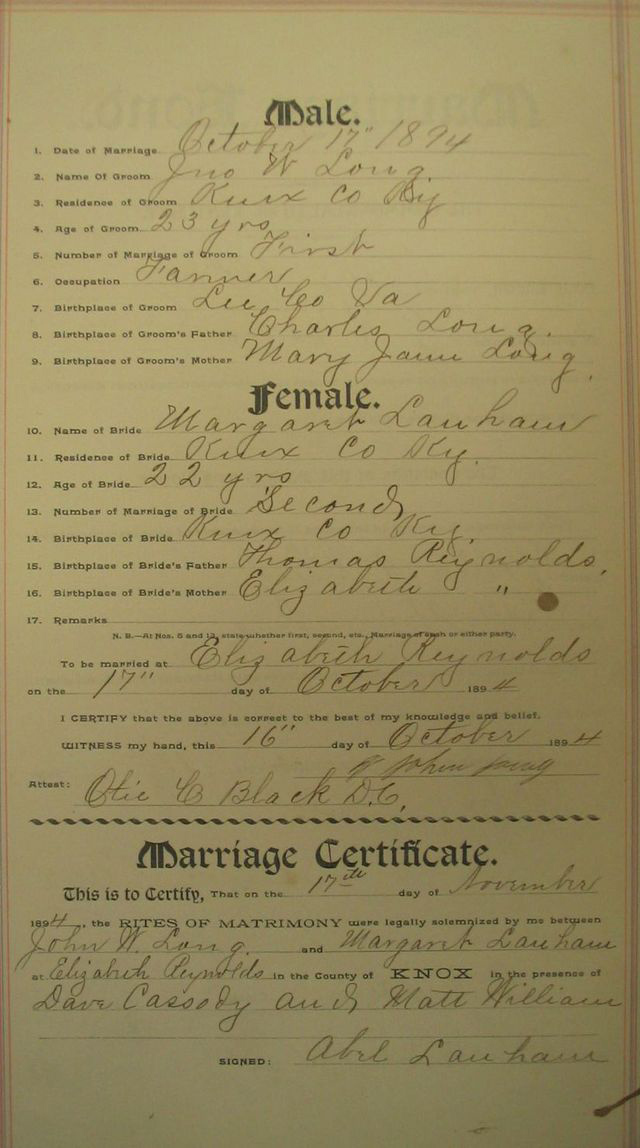 Male.
1. Date of Marriage October 17" 1894
2. Name Of Groom Jno W Long.
3. Residence of Groom Knox Co Ky
4. Age of Groom 23 yrs
5. Number of Marriage of Groom First
6. Occupation Farmer
7. Birthplace of Groom Lee Co Va
8. Birthplace of Groom's Father Charles Long.
9. Birthplace of Groom's Mother Mary Jane Long.
Female.
10. Name of Bride Margaret Lanham
11. Residence of Bride Knox Co Ky.
12. Age of Bride 22 yrs
13. Number of Marriage of Bride Second
14. Birthplace of Bride Knox Co Ky.
15. Birthplace of Bride's Father Thomas Reynolds,
16. Birthplace of Bride's Mother Elizabeth "
17. Remarks
N. B.—At Nos. 5 and 13, state whether first, second, etc., Marriage of each or either party.
To be married at Elizabeth Reynolds
on the 17" day of October 1894
I CERTIFY that the above is correct to the best of my knowledge and belief.
WITNESS my hand, this 16" day of October 1894
John Long
Attest: Otie C Black D.C,
Marriage Certificate.
This is to Certify, That on the 17th day of November
1894, the RITES OF MATRIMONY were legally solemnized by me between
John W. Long. and Margaret Lanham
at Elizabeth Reynolds in the County of KNOX in the presence of
Dave Cassody and Matt William
SIGNED: Abel Lanham